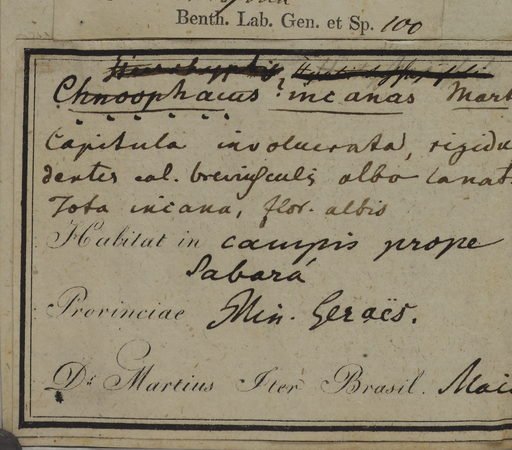 Benth. Lab. Gen. et Sp. 100
Chnoophacus? incanas Mart
Capitula involucrata, rigidu
dentes cal. breviusculi albo lanat
Tota incana, flor. albis
Habitat in campis prope
Sabará
Provinciae Min. Geraës.
Dr. Martius Iter Brasil. Mai